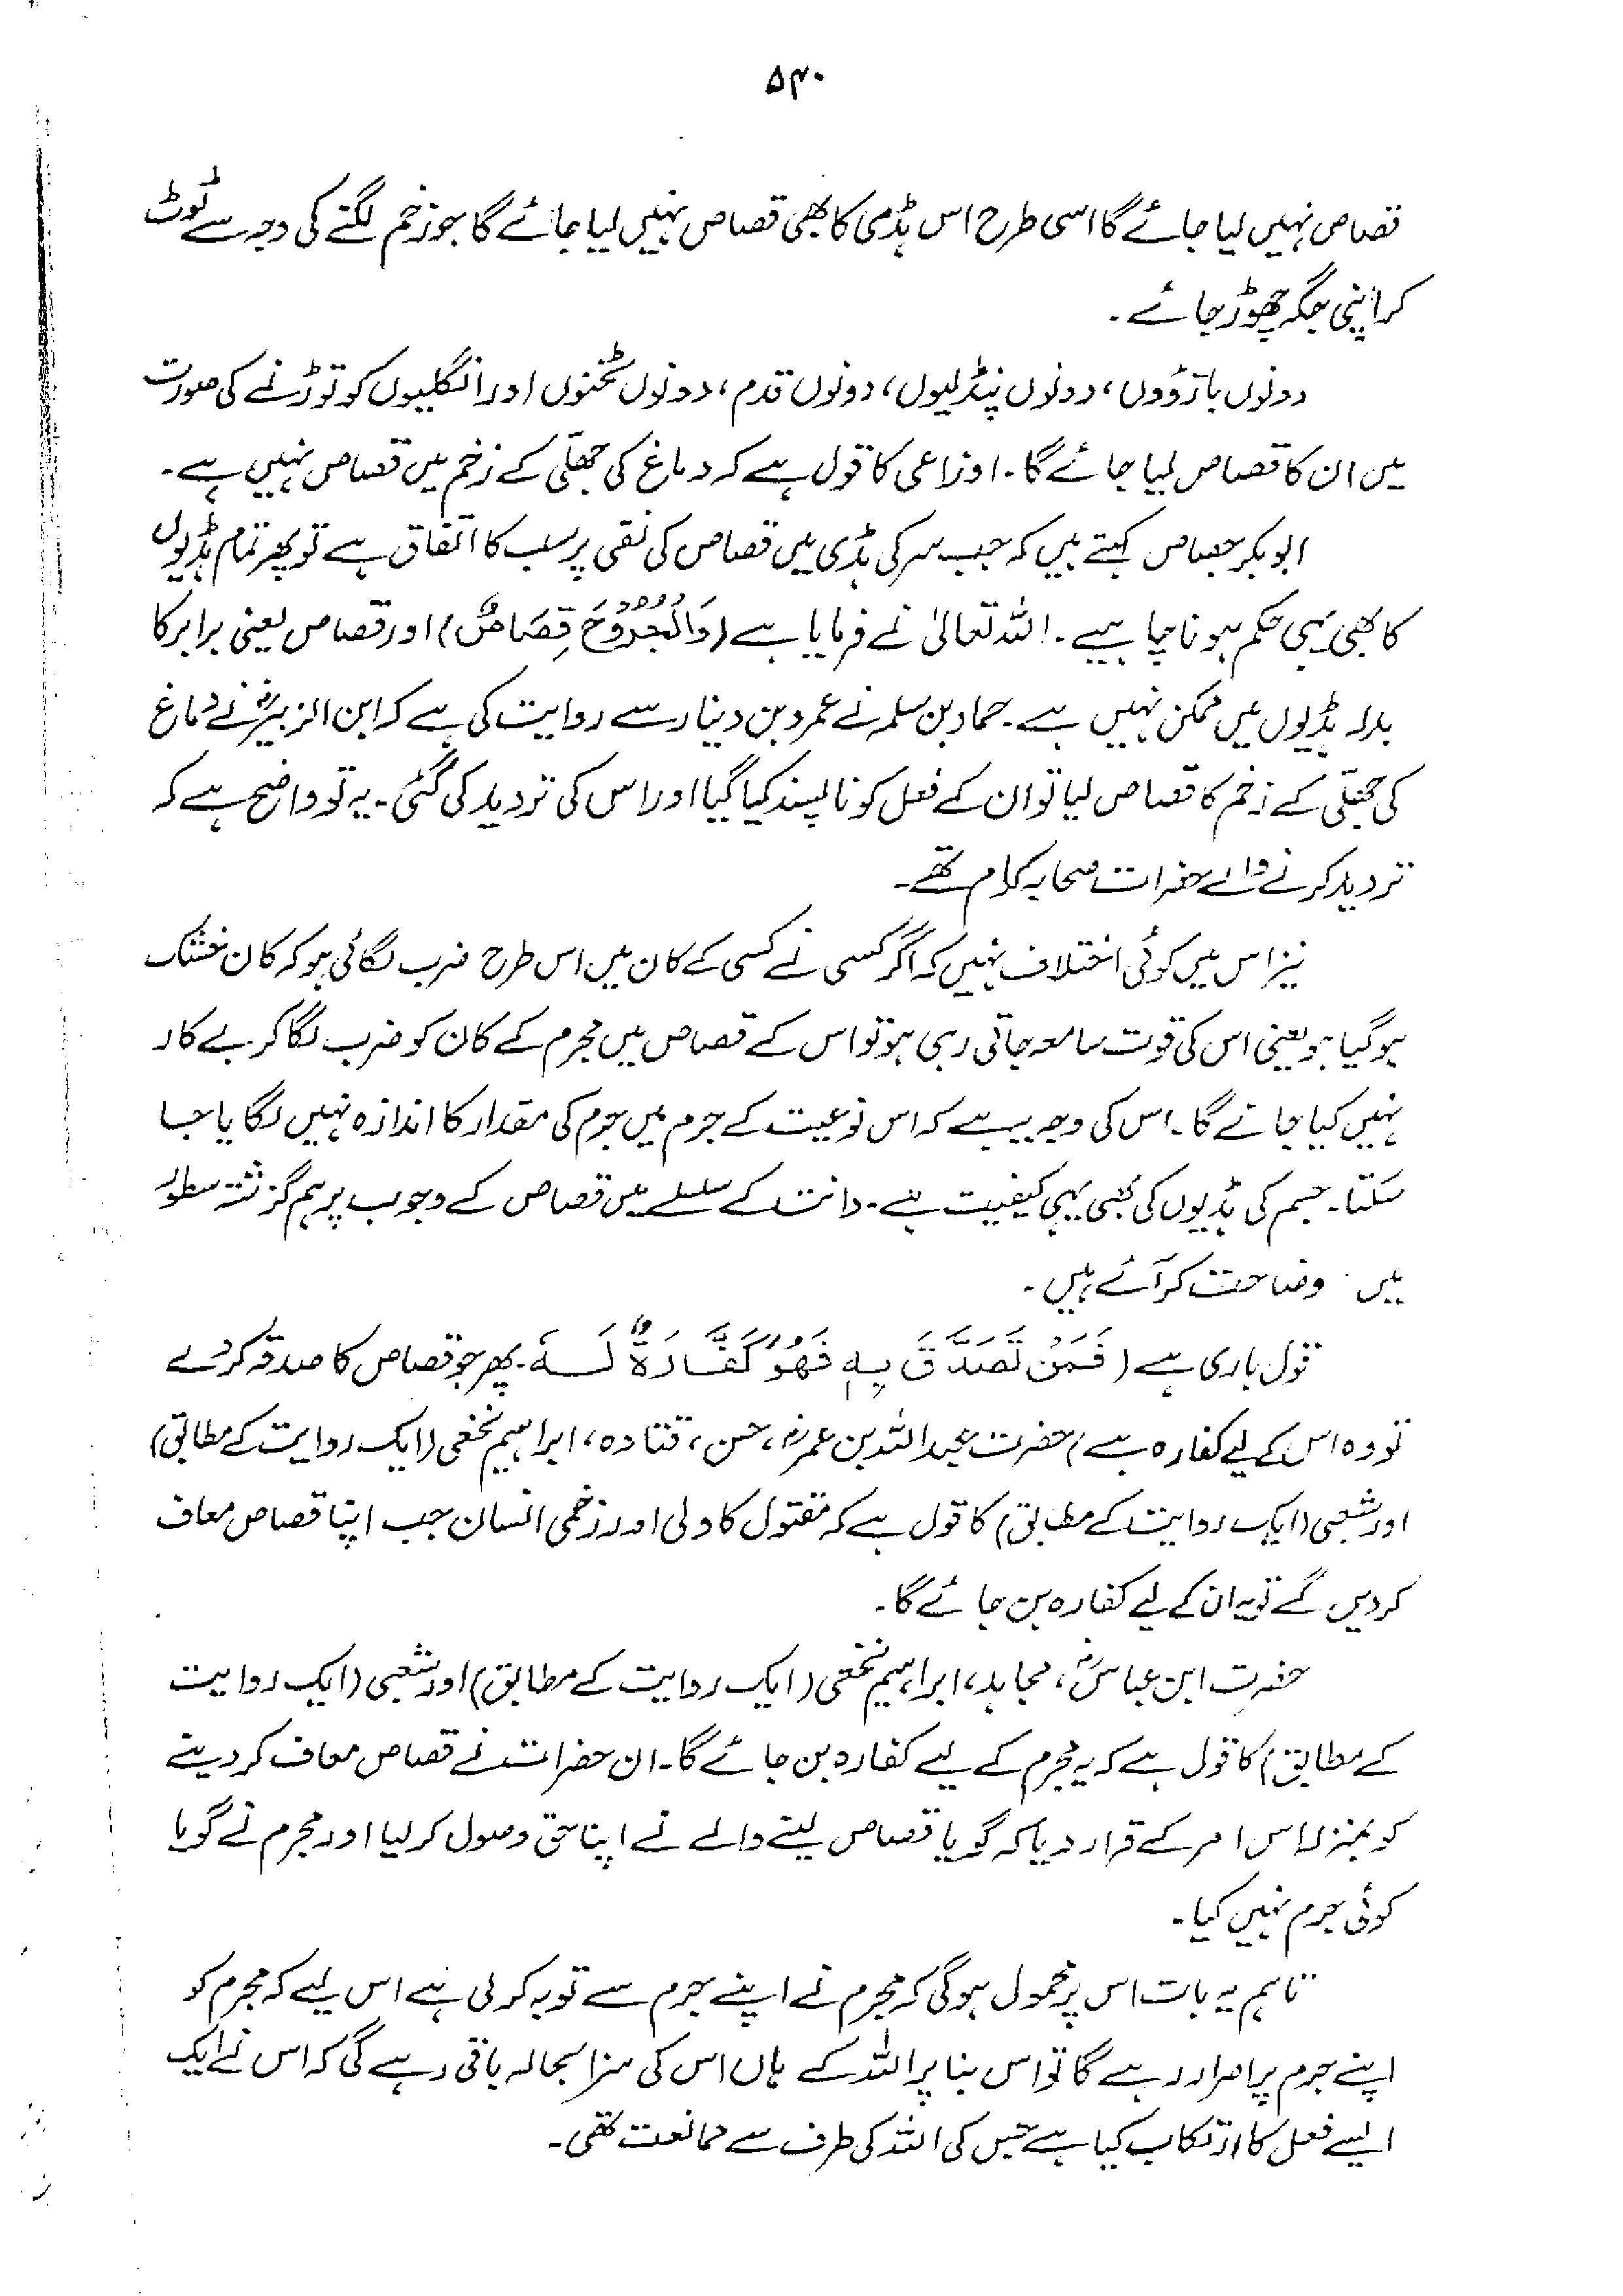 ۵۴۰
قصاص نہیں لیا جائے گا اسی طرح اس ہڈی کا بھی قصاص نہیں لیا جائے گا جو زخم لگنے کی وجہ سے ٹوٹ
کر اپنی جگہ چھوڑ جائے۔
دونوں بازؤوں، دونوں پنڈلیوں، دونوں قدم، دونوں ٹخنوں اور انگلیوں کو توڑنے کی صورت
میں ان کا قصاص لیا جائے گا۔ اوزاعی کا قول ہے کہ دماغ کی جھلّی کے زخم میں قصاص نہیں ہے۔
ابو بکر جصاص کہتے ہیں کہ جب سر کی ہڈی میں قصاص کی نفی پر سب کا اتفاق ہے تو پھر تمام ہڈیوں
کا بھی یہی حکم ہونا چاہیے۔ اللہ تعالیٰ نے فرمایا ہے (وَالْجُرُوْحَ قِصَاصٌ) اور قصاص یعنی برابر کا
بدلہ ہڈیوں میں ممکن نہیں ہے۔ حماد بن سلمہ نے عمرو بن دینار سے روایت کی ہے کہ ابن الزبیرؓ نے دماغ
کی جھلّی کے زخم کا قصاص لیا تو ان کے فعل کو ناپسند کیا گیا اور اس کی تردید کی گئی۔ یہ تو واضح ہے کہ
تردید کرنے والے حضرات صحابہ کرام تھے۔
نیز اس میں کوئی اختلاف نہیں کہ اگر کسی نے کسی کے کان میں اس طرح ضرب لگائی ہو کہ کان خشک
ہو گیا ہو یعنی اس کی قوت سامعہ جاتی رہی ہو تو اس کے قصاص میں مجرم کے کان کو ضرب لگا کر بے کار
نہیں کیا جائے گا۔ اس کی وجہ یہ ہے کہ اس نوعیت کے جرم میں جرم کی مقدار کا اندازہ نہیں لگایا جا
سکتا۔ جسم کی ہڈیوں کی بھی یہی کیفیت ہے۔ دانت کے سلسلے میں قصاص کے وجوب پر ہم گزشتہ سطور
میں وضاحت کر آئے ہیں۔
قول باری ہے (فَمَنْ تَصَدَّقَ بِهٖ فَهُوَ كَفَّارَةٌ لَهٗ۔ پھر جو قصاص کا صدقہ کر دے
تو وہ اس کے لیے کفارہ ہے) حضرت عبداللہ بن عمرؓ، حسن، قتادہ، ابراہیم نخعی (ایک روایت کے مطابق)
اور شعبی (ایک روایت کے مطابق) کا قول ہے کہ مقتول کا ولی اور زخمی انسان جب اپنا قصاص معاف
کر دیں گے تو یہ ان کے لیے کفارہ بن جائے گا۔
حضرت ابن عباسؓ، مجاہد، ابراہیم نخعی (ایک روایت کے مطابق) اور شعبی (ایک روایت
کے مطابق) کا قول ہے کہ یہ مجرم کے لیے کفارہ بن جائے گا۔ ان حضرات نے قصاص معاف کر دینے
کو بمنزلہ اس امر کے قرار دیا کہ گویا قصاص لینے والے نے اپنا حق وصول کر لیا اور مجرم نے گویا
کوئی جرم نہیں کیا۔
تاہم یہ بات اس پر محمول ہو گی کہ مجرم نے اپنے جرم سے توبہ کر لی ہے اس لیے کہ مجرم کو
اپنے جرم پر اصرار رہے گا تو اس بنا پر اللہ کے ہاں اس کی سزا بحالہ باقی رہے گی کہ اس نے ایک
ایسے فعل کا ارتکاب کیا ہے جس کی اللہ کی طرف سے ممانعت تھی۔